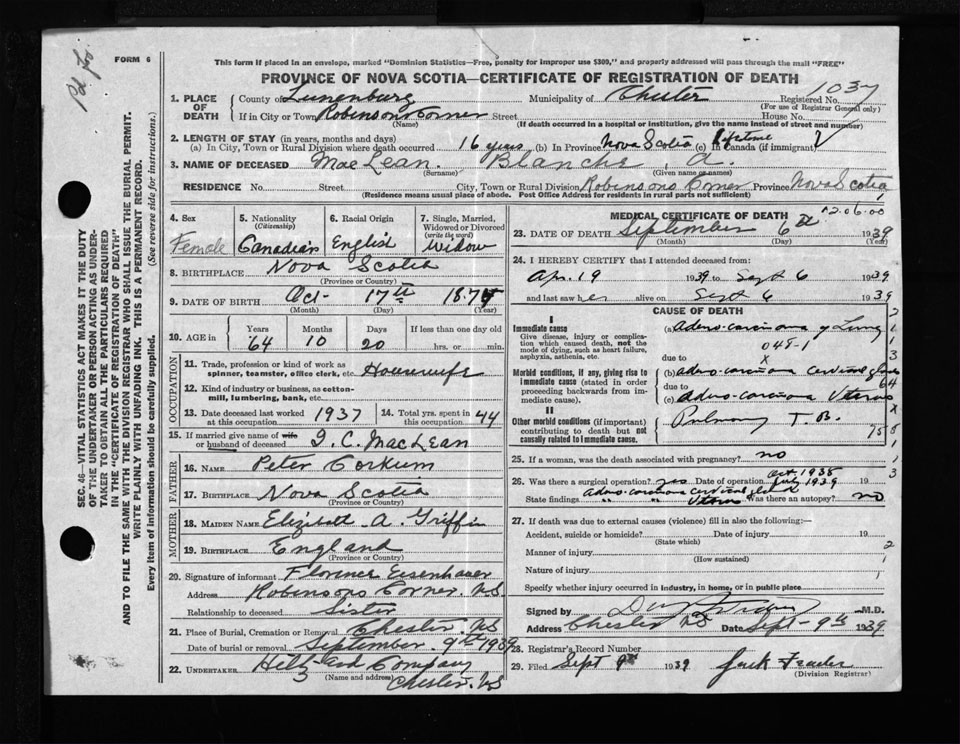 Pd.
FORM 6
This form if placed in an envelope, marked "Dominion Statistics—Free, penalty for improper use $300," and properly addressed will pass through the mail "FREE"
PROVINCE OF NOVA SCOTIA—CERTIFICATE OF REGISTRATION OF DEATH
1. PLACE OF DEATH County of Lunenburg Municipality of Chester Registered No. 1037
(For use of Registrar General only)
If in City or Town Robinsons Corner Street House No.
(Name) (If death occurred in a hospital or institution, give the name instead of street and number)
2. LENGTH OF STAY (in years, months and days)
(a) In City, Town or Rural Division where death occurred 16 years (b) In Province Nova Scotia lifetime (c) In Canada (if immigrant)
3. NAME OF DECEASED MacLean. Blanche, A.
(Surname) (Given name or names)
RESIDENCE No. Street City, Town or Rural Division Robinsons Corner Province Nova Scotia
(Residence means usual place of abode. Post Office Address for residents in rural parts not sufficient)
4. Sex Female
5. Nationality (Citizenship) Canadian
6. Racial Origin English
7. Single, Married, Widowed or Divorced (write the word) Widow
8. BIRTHPLACE Nova Scotia
(Province or Country)
9. DATE OF BIRTH Oct- 17th 1874
(Month) (Day) (Year)
10. AGE Years 64 Months 10 Days 20 If less than one day old hrs. or min.
OCCUPATION
11. Trade, profession or kind of work as spinner, teamster, office clerk, etc. Housewife
12. Kind of industry or business, as cotton-mill, lumbering, bank, etc.
13. Date deceased last worked at this occupation 1937 14. Total yrs. spent in this occupation 44
15. If married give name of wife or husband of deceased I. C. MacLean
FATHER
16. NAME Peter Corkum
17. BIRTHPLACE Nova Scotia
MOTHER
18. MAIDEN NAME Elizibett A. Griffin
19. BIRTHPLACE England
(Province or Country)
20. Signature of informant Florence Eisenhauer
Address Robinsons Corner. N.S.
Relationship to deceased Sister
21. Place of Burial, Cremation or Removal Chester. NS
Date of burial or removal September 9th 1939
22. UNDERTAKER Hiltz and Company
(Name and address) Chester. NS
MEDICAL CERTIFICATE OF DEATH 12.06.00
23. DATE OF DEATH September 6th 1939
(Month) (Day) (Year)
24. I HEREBY CERTIFY that I attended deceased from:
Apr. 19 1939 to Sept 6 1939
and last saw her alive on Sept 6 1939
CAUSE OF DEATH
I
Immediate cause
Give disease, injury or complication which caused death, not the mode of dying, such as heart failure, asphyxia, asthenia, etc.
(a) Adeno-carcinoma of Lung
048-1
due to x
Morbid conditions, if any, giving rise to immediate cause (stated in order proceeding backwards from immediate cause).
(b) adeno-carcinoma cervical glands
due to 64
(c) adeno-carcinoma Uterus
II
Other morbid conditions (if important) contributing to death but not causally related to immediate cause.
Pulmary T. B.
25. If a woman, was the death associated with pregnancy? no
26. Was there a surgical operation? yes Date of operation Oct. 1938 July 1939 19
State findings Adeno-carcinoma cervical gland
" " Uterus Was there an autopsy? no
27. If death was due to external causes (violence) fill in also the following:
Accident, suicide or homicide? Date of injury 19
(State which)
Manner of injury
(How sustained)
Nature of injury
Specify whether injury occurred in industry, in home, or in public place
Signed by M.D.
Address Chester NS Date Sept- 9th 1939
28. Registrar's Record Number
29. Filed Sept 9th 1939
(Division Registrar)
SEC. 46—VITAL STATISTICS ACT MAKES IT THE DUTY
OF THE UNDERTAKER OR PERSON ACTING AS UNDER-
TAKER TO OBTAIN ALL THE PARTICULARS REQUIRED
IN THE "CERTIFICATE OF REGISTRATION OF DEATH"
AND TO FILE THE SAME WITH THE DIVISION REGISTRAR WHO SHALL ISSUE THE BURIAL PERMIT.
WRITE PLAINLY WITH UNFADING INK. THIS IS A PERMANENT RECORD.
Every item of information should be carefully supplied. (See reverse side for instructions.)